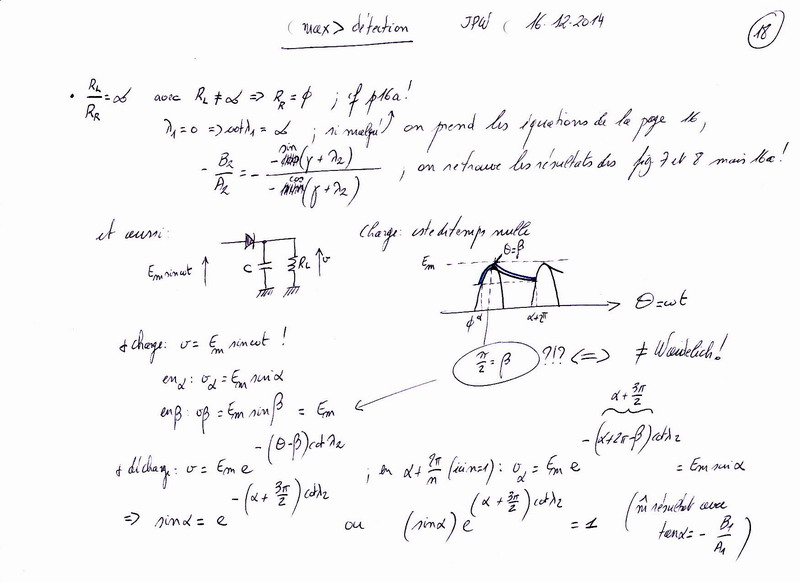 (max> détection JPW ( 16.12.2014
18
• R_L/R_R = ∞ avec R_L ≠ ∞ => R_R = ϕ ; cf p16a!
λ₁=0 => cotλ₁ = ∞ ; si malgré on prend les équations de la page 16,
- B₂/A₂ = - -sin(γ+λ₂)/-cos(γ+λ₂) ; on retrouve les résultats des fig 7 et 8 mais 16a!
et aussi: charge: cste de temps nulle
E_m sinωt C R_L v
E_m θ=β
ϕ α α+2π θ=ωt
* charge: v = E_m sinωt !
π/2 = β ?!? <=> ≠
en α: v_α = E_m sinα
en β: v_β = E_m sinβ = E_m
* décharge: v = E_m e^{-(θ-β)cotλ₂} ; en α + 2π/n (ici n=1): v_α = E_m e^{-(α+2π-β)cotλ₂} = E_m sinα
α + 3π/2
=> sinα = e^{-(α + 3π/2)cotλ₂} ou (sinα) e^{(α + 3π/2)cotλ₂} = 1 (m̂ résultat avec
tanα = - B₁/A₁)